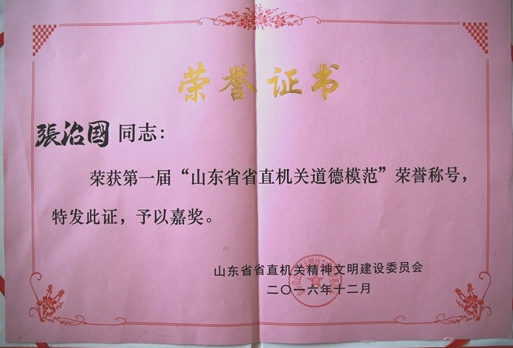 荣誉证书
張治國 同志：
荣获第一届“山东省省直机关道德模范”荣誉称号，
特发此证，予以嘉奖。
山东省省直机关精神文明建设委员会
二〇一六年十二月